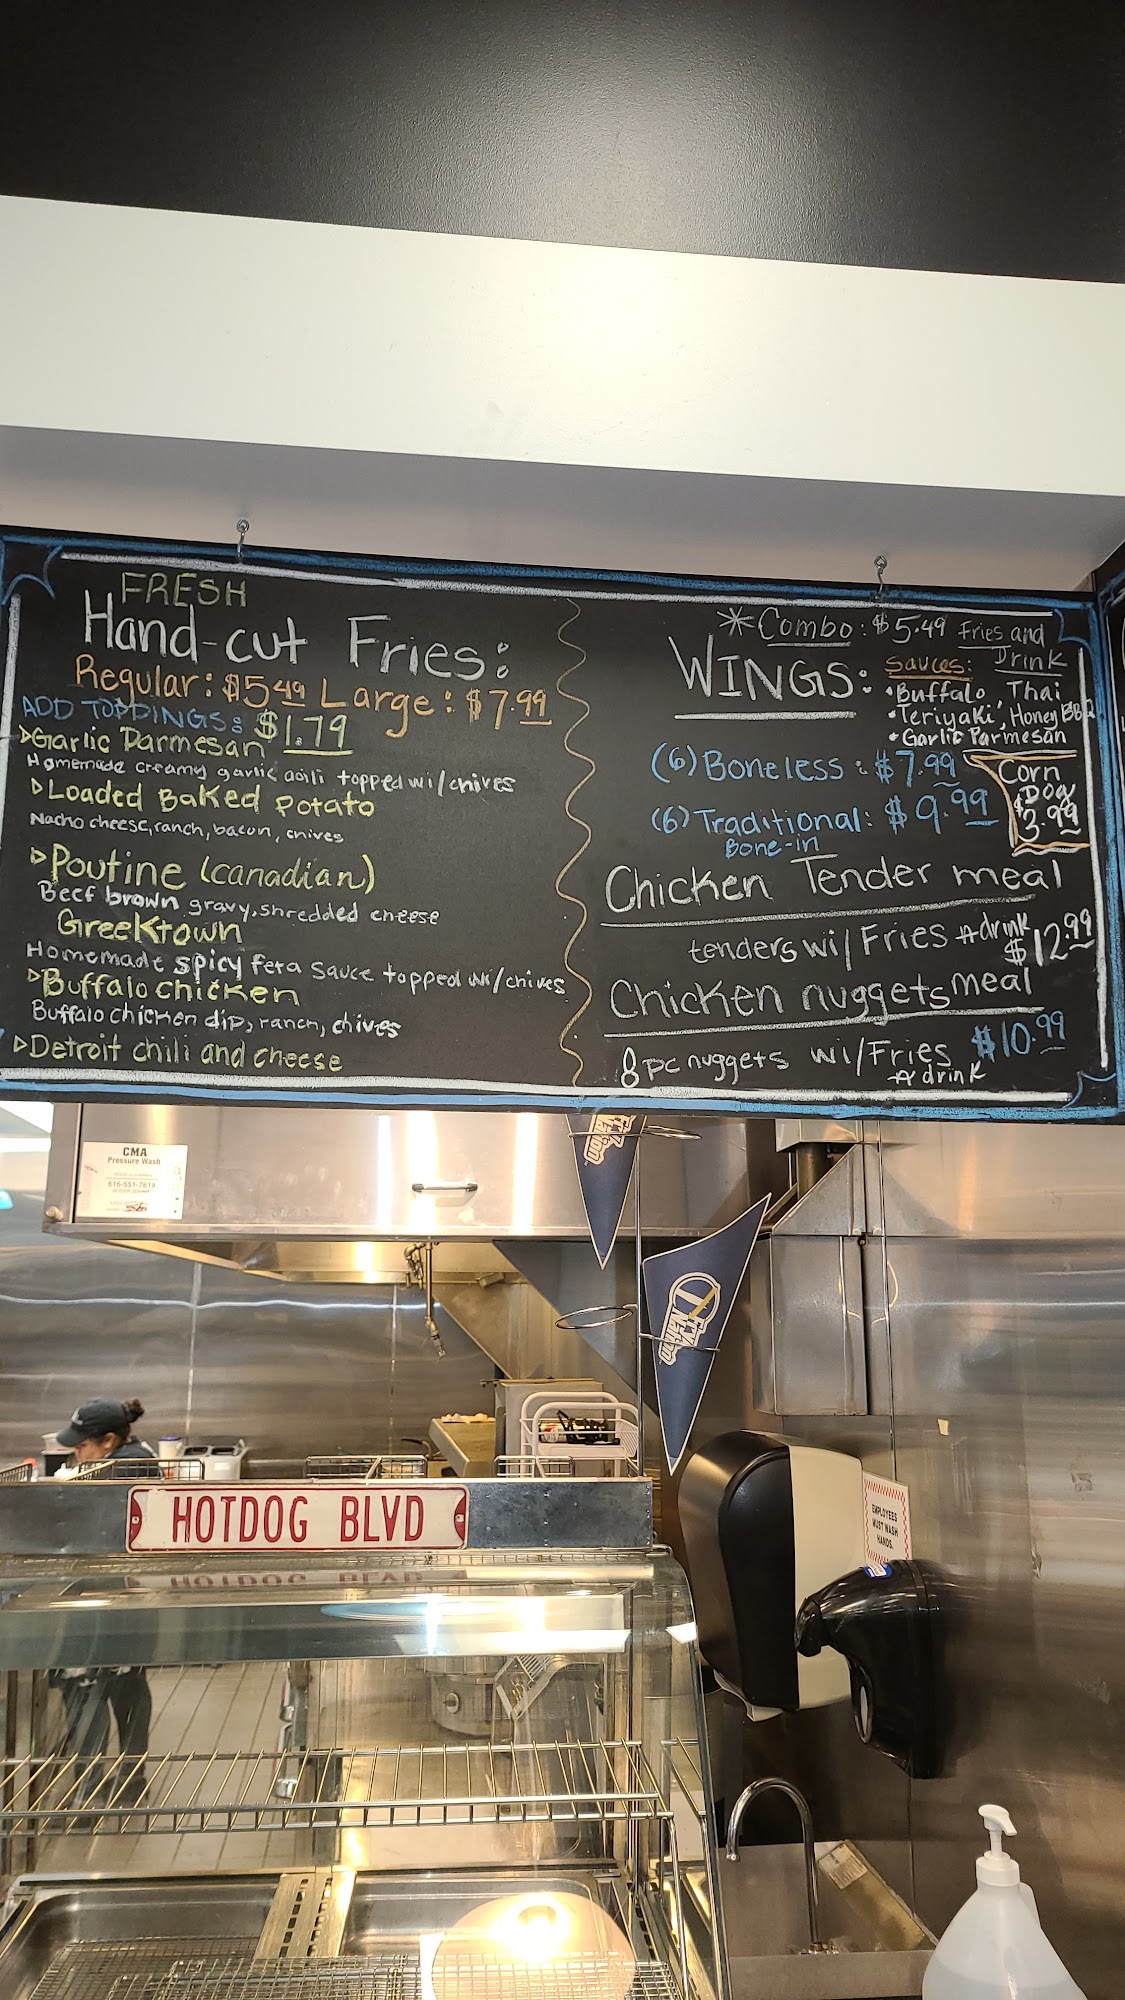 FRESH
Hand-cut Fries:
Regular: $5.49 Large: $7.99
ADD TOPPINGS: $1.79
Garlic Parmesan
Homemade creamy garlic aoili topped wi/chives
Loaded Baked potato
Nacho cheese, ranch, bacon, chives
Poutine (canadian)
Beef brown gravy, shredded cheese
Greektown
Homemade spicy feta sauce topped wi/chives
Buffalo chicken
Buffalo chicken dip, ranch, chives
Detroit chili and cheese
*Combo: $5.49 Fries and
Drink
WINGS:
Sauces:
•Buffalo, Thai
•Teriyaki, Honey BBQ
•Garlic Parmesan
(6) Boneless: $7.99
(6) Traditional: $9.99
Bone-in
Corn
Dog
$3.99
Chicken Tender meal
tenders wi/Fries + drink
$12.99
Chicken nuggets meal
8pc nuggets wi/Fries $10.99
+ drink
CMA
Pressure Wash
616-551-7619
City
Nation
HOTDOG BLVD
EMPLOYEES
MUST WASH
HANDS.